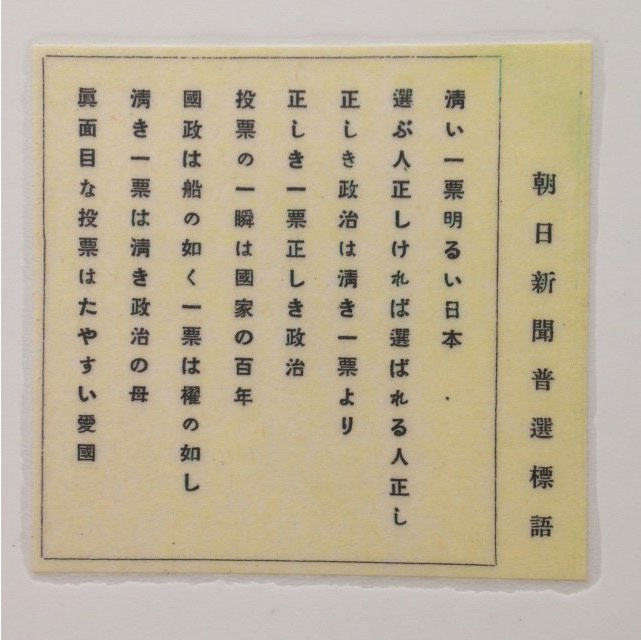 朝日新聞普選標語
清い一票明るい日本
選ぶ人正しければ選ばれる人正し
正しき政治は清き一票より
正しき一票正しき政治
投票の一瞬は國家の百年
國政は船の如く一票は櫂の如し
清き一票は清き政治の母
眞面目な投票はたやすい愛國